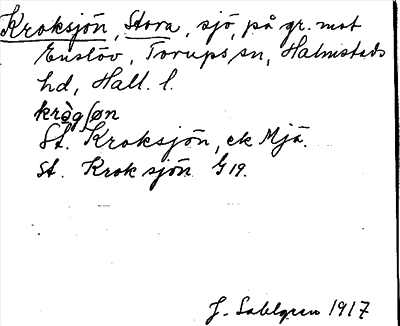 Kroksjön, Stora, sjö, på gr. mot
Enslöv, Torups sn, Halmstads
hd, Hall. l.
St. Kroksjön, ek Mjä.
St. Kroksjön G 19.
J. Sahlgren 1917